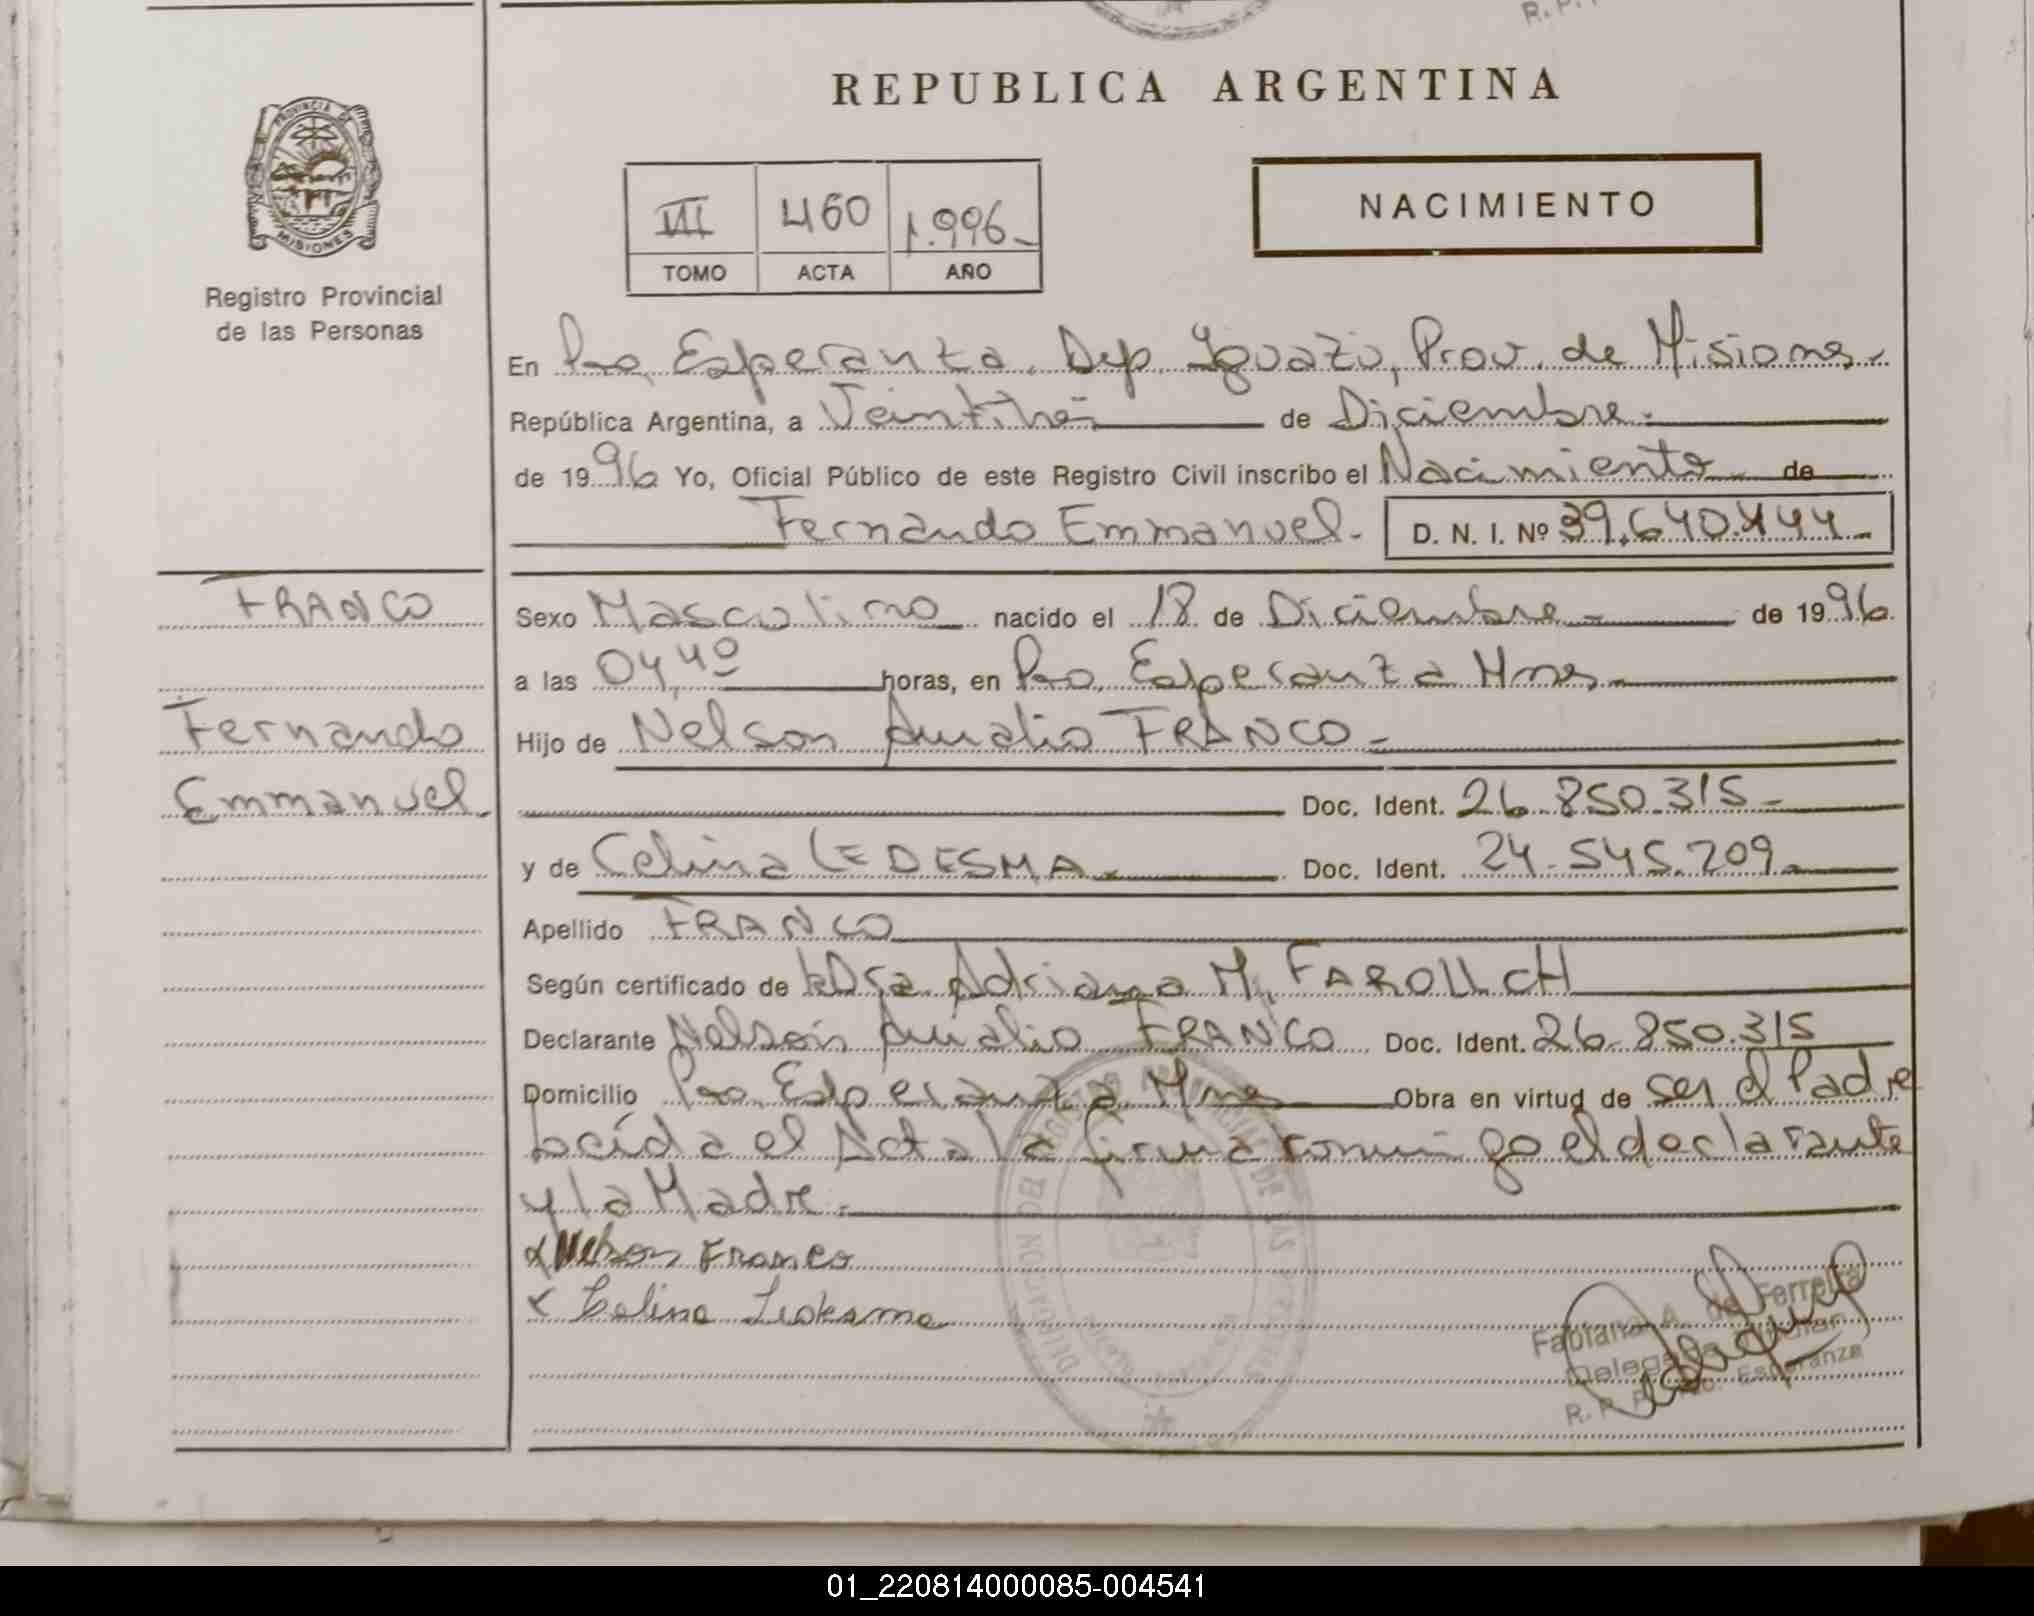 R. P.
REPUBLICA ARGENTINA
PROVINCIA DE
MISIONES
Registro Provincial
de las Personas
III 460 1.996-
TOMO ACTA AÑO
NACIMIENTO
En Pto. Esperanza, Dep. Iguazú, Prov. de Misiones-
República Argentina, a Veintitrés de Diciembre.-
de 1996 Yo, Oficial Público de este Registro Civil inscribo el Nacimiento de
Fernando Emmanuel.- D. N. I. Nº 39.640.444-
FRANCO
Fernando
Emmanuel.
Sexo Masculino nacido el 18 de Diciembre- de 1996
a las 04,40 horas, en Pto. Esperanza Mnes-
Hijo de Nelson Aurelio FRANCO-
Doc. Ident. 26.850.315-
y de Celina LEDESMA.- Doc. Ident. 24.545.209-
Apellido FRANCO
Según certificado de Dra Adriana M. FAROLLCH
Declarante Nelson Aurelio FRANCO Doc. Ident. 26.850.315
Domicilio Pto. Esperanza Mnes Obra en virtud de ser el Padre
Leída el Acta la firma conmigo el declarante
y la Madre.-
x Nelson Franco
x Celina Ledesma
Fabiana A. de Ferreira
Delegada Titular
R. P. P. Pto. Esperanza
01_220814000085-004541